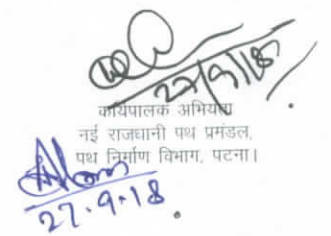 27/9/18
कार्यपालक अभियंता
नई राजधानी पथ प्रमंडल,
पथ निर्माण विभाग, पटना।
27.9.18